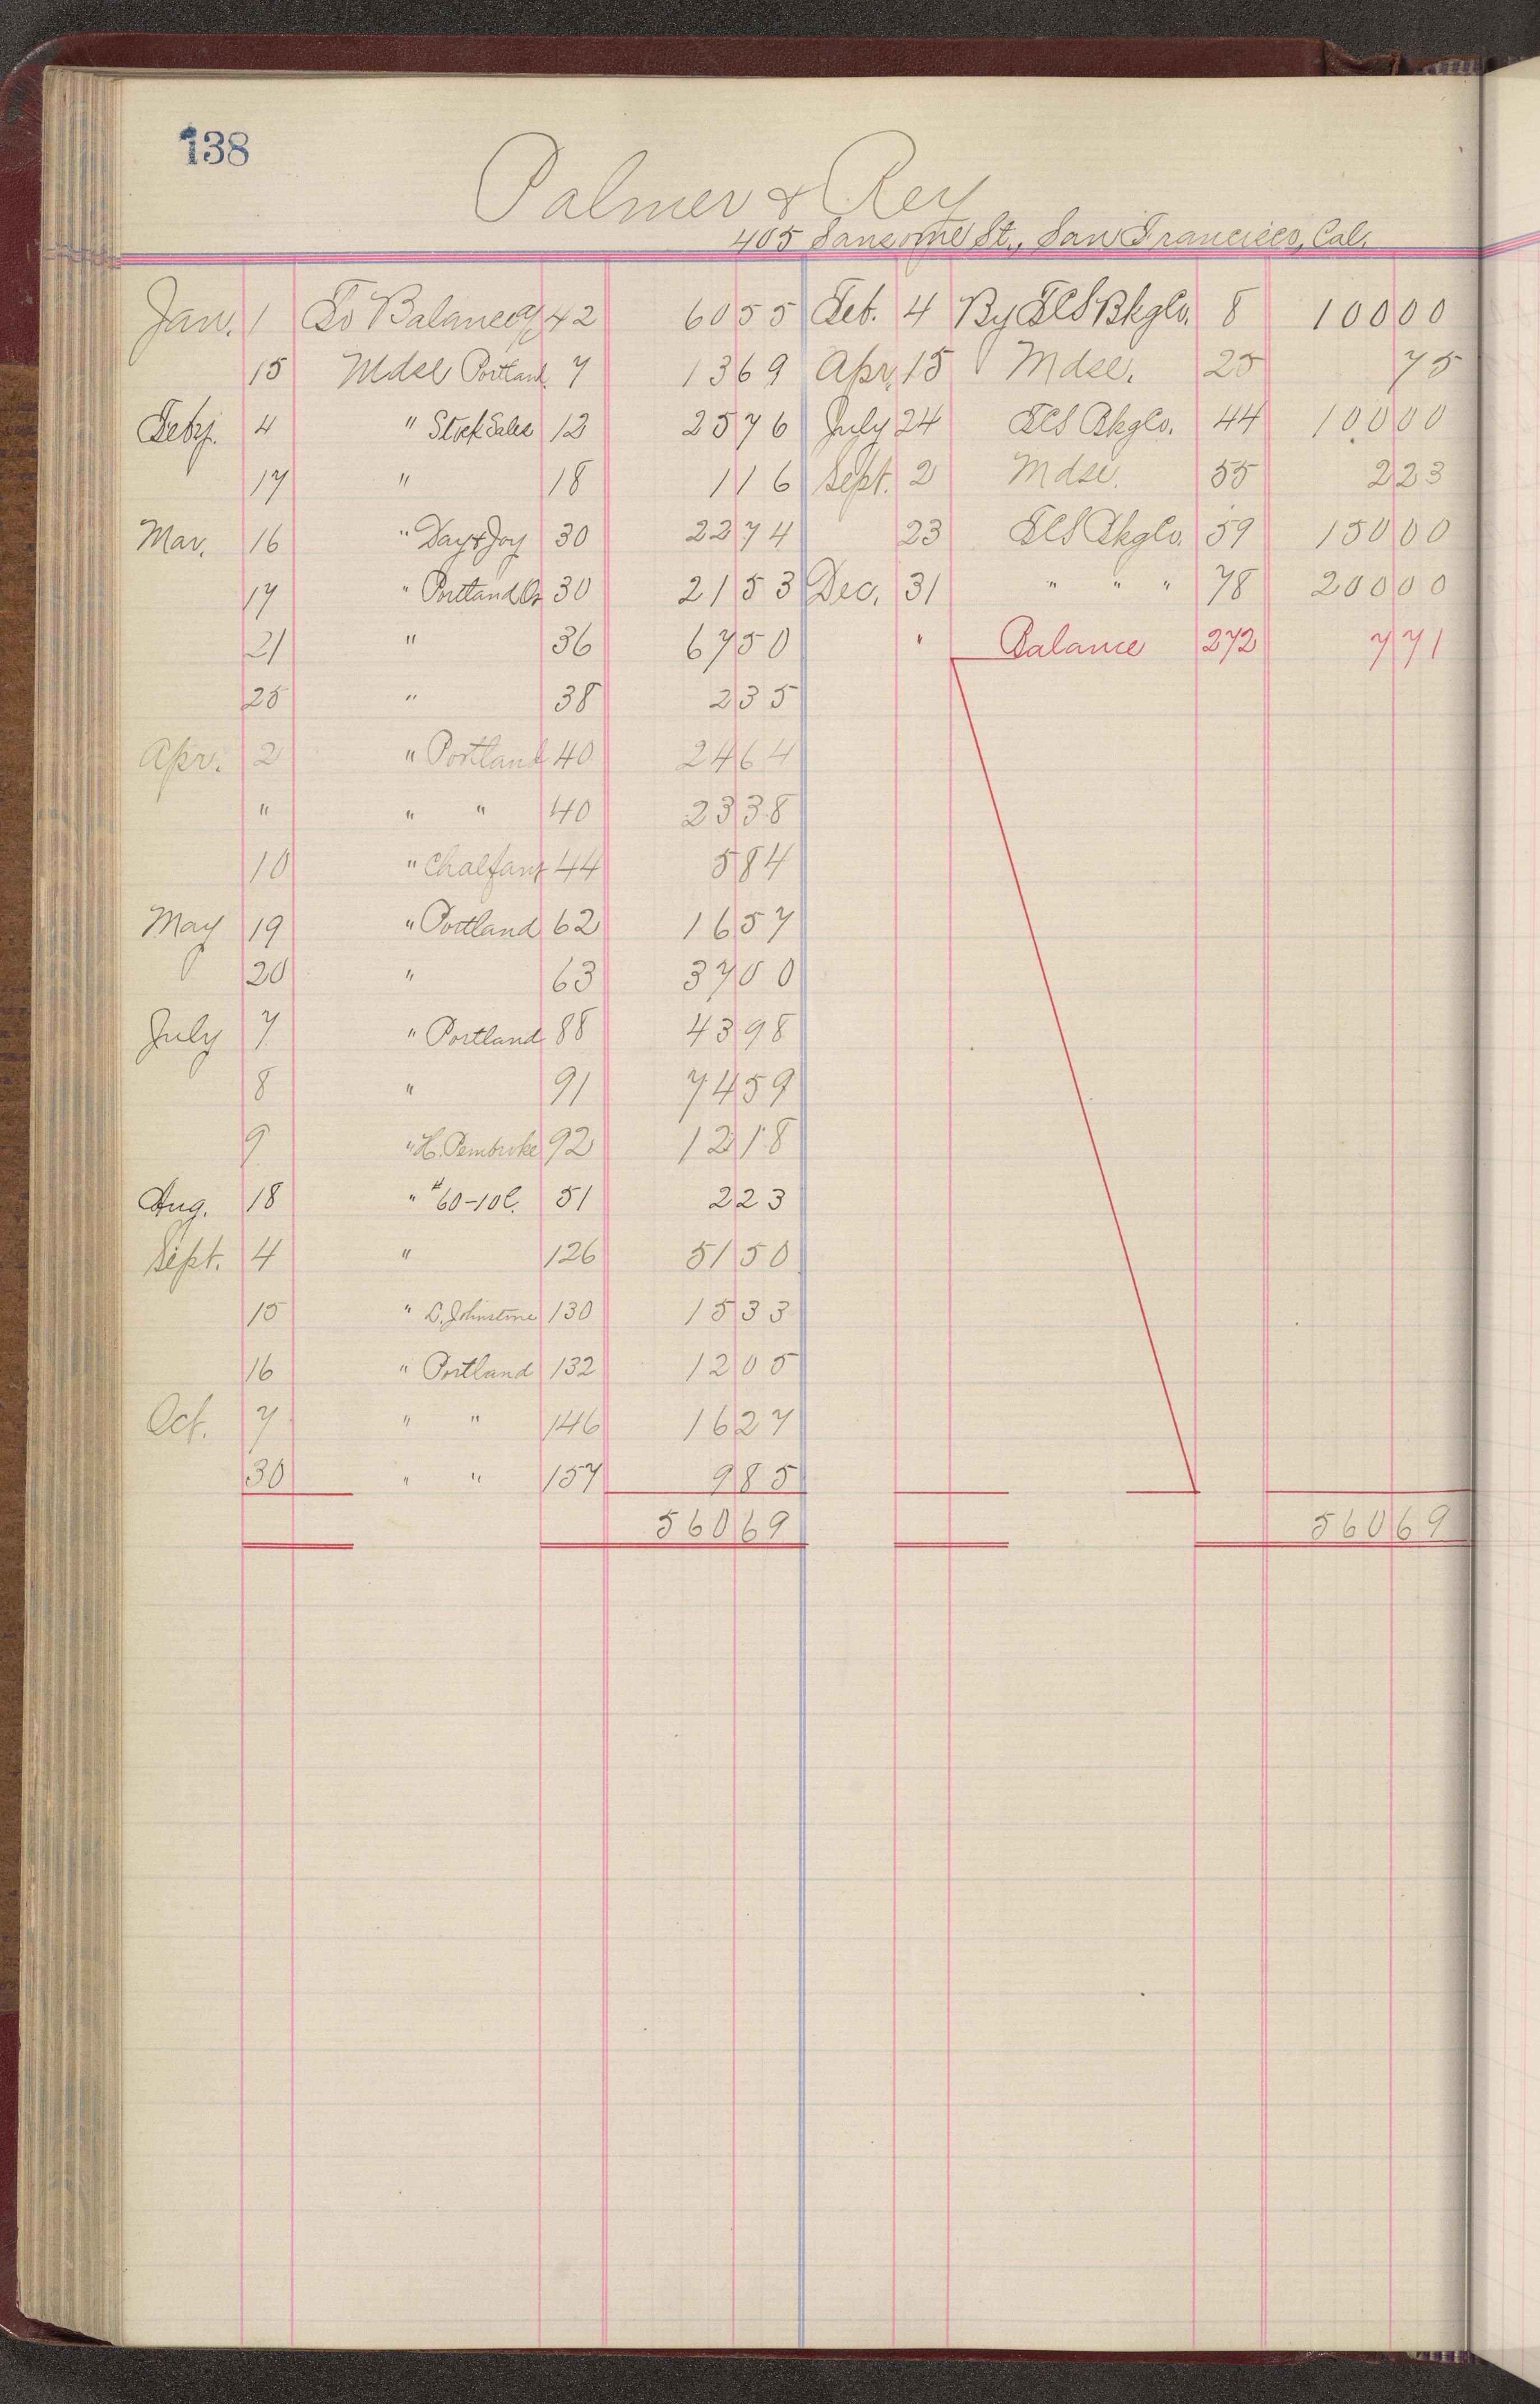 138
Palmer & Rey
405 Sansome St., San Francisco, Cal.
Jan. 1 To Balance 42 60 55 Feb. 4 By TCS Bkg Co. 8 100 00
15 Mdse Portland. 7 13 69 Apr. 15 Mdse. 25 75
Feby. 4 " Stock Sales 12 25 76 July 24 TCS Bkg Co. 44 100 00
17 " 18 1 16 Sept. 2 Mdse. 55 2 23
Mar. 16 " Day & Joy 30 22 74 23 TCS Bkg Co. 59 150 00
17 " Portland Or 30 21 53 Dec. 31 " " " 78 200 00
21 " 36 67 50 " Balance 272 7 71
25 " 38 2 35
Apr. 2 " Portland 40 24 64
" " " 40 23 38
10 " Chalfant 44 5 84
May 19 " Portland 62 16 57
20 " 63 37 00
July 7 " Portland 88 43 98
8 " 91 74 59
9 " H. Pembroke 92 12 18
Aug. 18 " #60-10C. 51 2 23
Sept. 4 " 126 51 50
15 " D. Johnstone 130 15 33
16 " Portland 132 12 05
Oct. 7 " " 146 16 27
30 " " 157 9 85
560 69 560 69